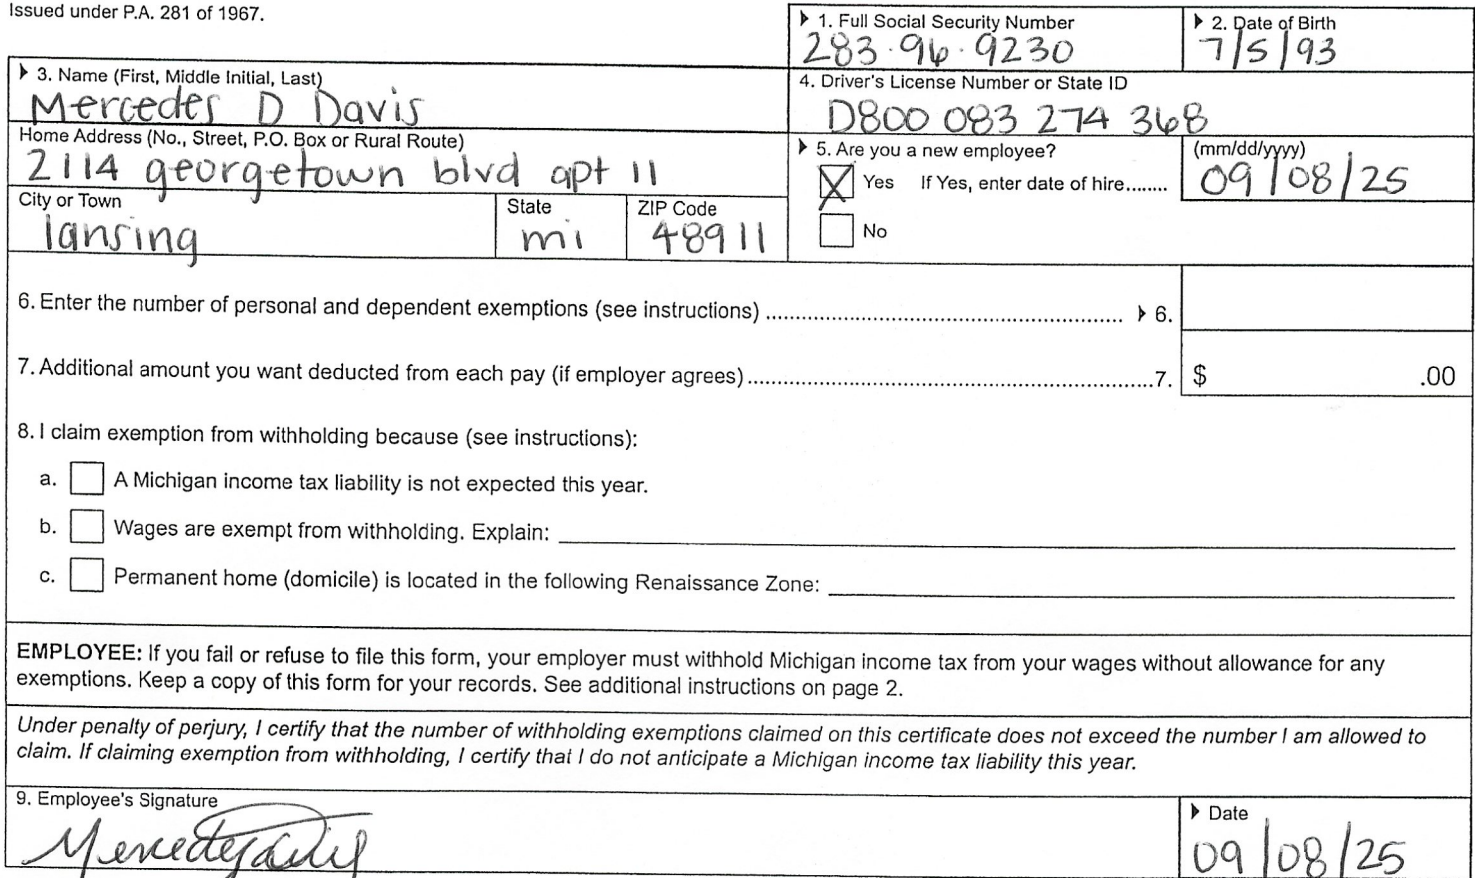 Issued under P.A. 281 of 1967.
1. Full Social Security Number
283-96-9230
2. Date of Birth
7/5/93
3. Name (First, Middle Initial, Last)
Mercedes D Davis
4. Driver's License Number or State ID
D800 083 274 368
Home Address (No., Street, P.O. Box or Rural Route)
2114 georgetown blvd apt 11
5. Are you a new employee?
Yes If Yes, enter date of hire........
(mm/dd/yyyy)
09/08/25
No
City or Town
lansing
State
mi
ZIP Code
48911
6. Enter the number of personal and dependent exemptions (see instructions) ........ 6.
7. Additional amount you want deducted from each pay (if employer agrees) ........ 7. $ .00
8. I claim exemption from withholding because (see instructions):
a. A Michigan income tax liability is not expected this year.
b. Wages are exempt from withholding. Explain:
c. Permanent home (domicile) is located in the following Renaissance Zone:
EMPLOYEE: If you fail or refuse to file this form, your employer must withhold Michigan income tax from your wages without allowance for any
exemptions. Keep a copy of this form for your records. See additional instructions on page 2.
Under penalty of perjury, I certify that the number of withholding exemptions claimed on this certificate does not exceed the number I am allowed to
claim. If claiming exemption from withholding, I certify that I do not anticipate a Michigan income tax liability this year.
9. Employee's Signature
Mercedes Davis
Date
09/08/25